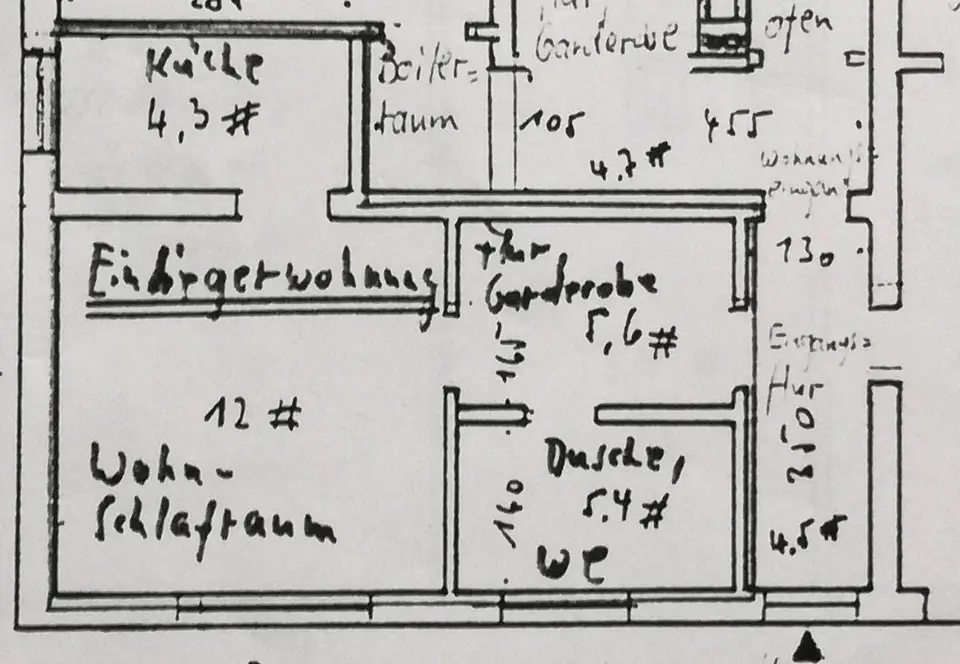 Küche
4,3 #
Boiler-
raum
Garderobe
ofen
105
455
4.7 #
Wohnungs
130
Einbürgerwohnung
Flur
Garderobe
5,6 #
165
Eingangs-
Flur
350
4.5 #
12 #
Wohn-
Schlafraum
Dusche,
5.4 #
WC
140